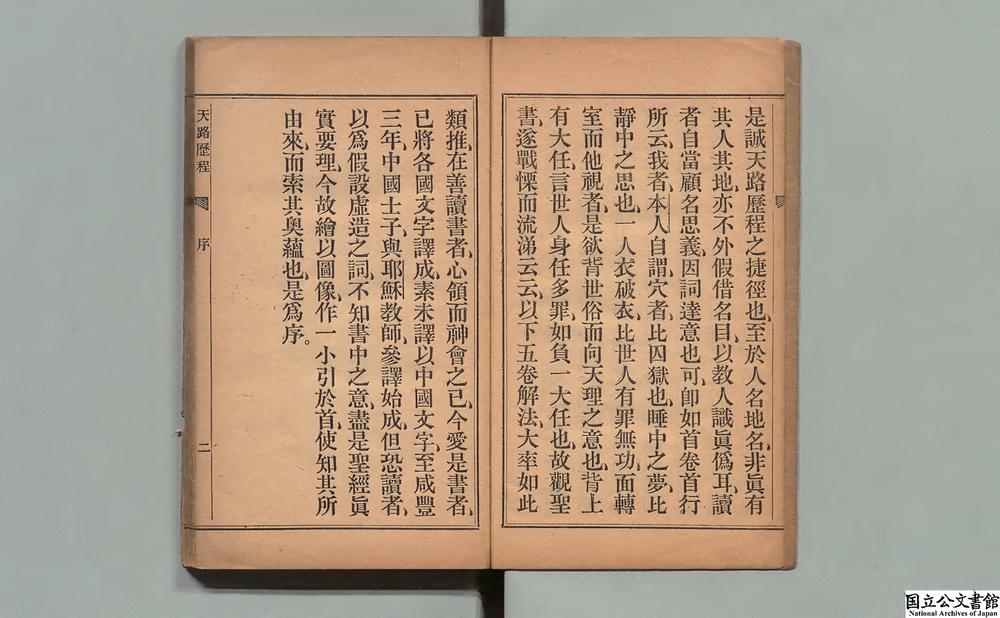 是誠天路歷程之捷徑也、至於人名地名、非眞有
其人其地、亦不外假借名目、以教人識眞僞耳、讀
者自當顧名思義、因詞達意也可、卽如首卷首行
所云、我者、本人自謂、穴者比囚獄也、睡中之夢、比
靜中之思也、一人衣破衣、比世人有罪無功、面轉
室而他視者、是欲背世俗而向天理之意也、背上
有大任、言世人身任多罪、如負一大任也、故觀聖
書、遂戰慄而流涕云云、以下五卷解法、大率如此
類推、在善讀書者、心領而神會之已、今愛是書者、
已將各國文字譯成、素未譯以中國文字、至咸豐
三年、中國士子、與耶穌教師、參譯始成、但恐讀者、
以爲假設虛造之詞、不知書中之意、盡是聖經眞
實要理、今故繪以圖像、作一小引於首、使知其所
由來、而索其奧蘊也、是爲序。
天路歷程 序 二
国立公文書館
National Archives of Japan